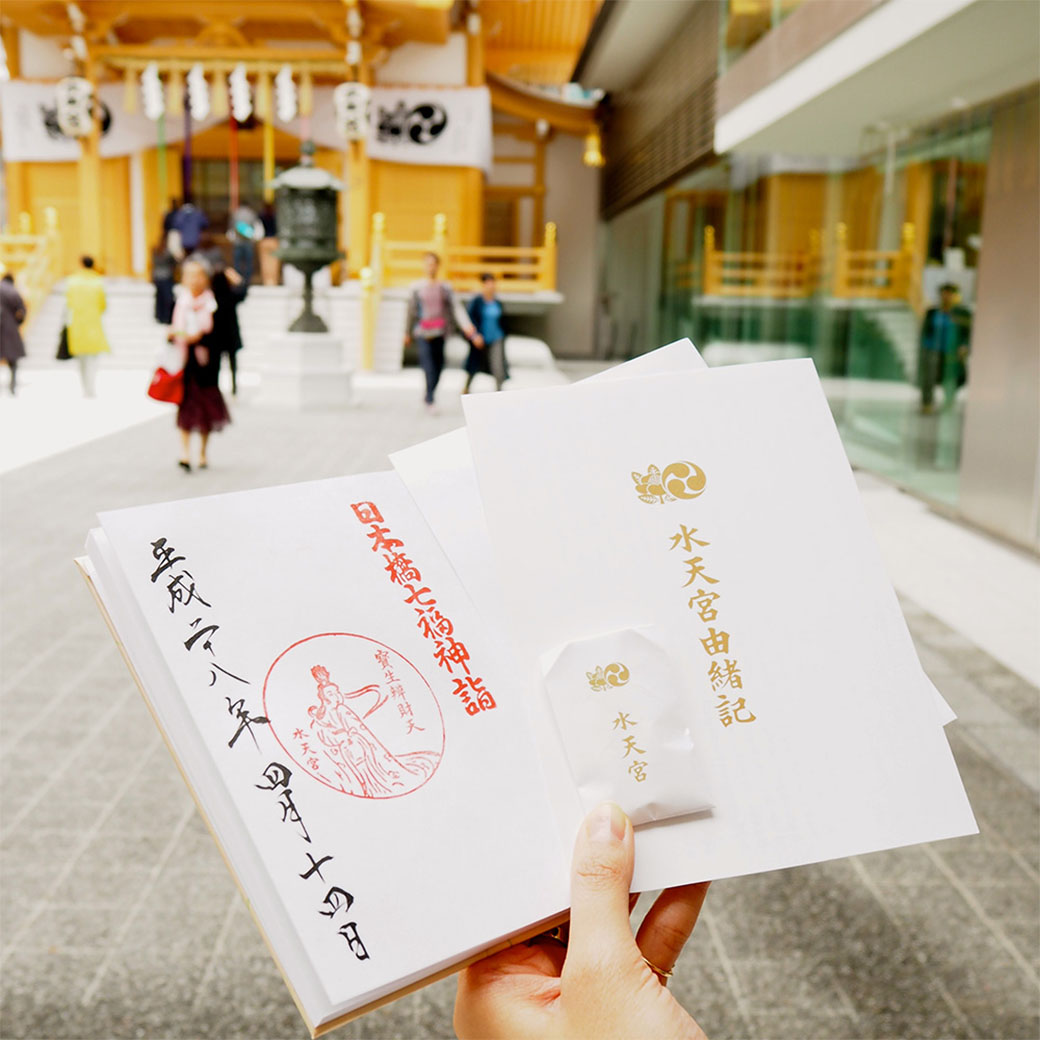 日本橋七福神詣
寶生辨財天
水天宮
平成二十八年 四月十四日
水天宮由緒記
水天宮